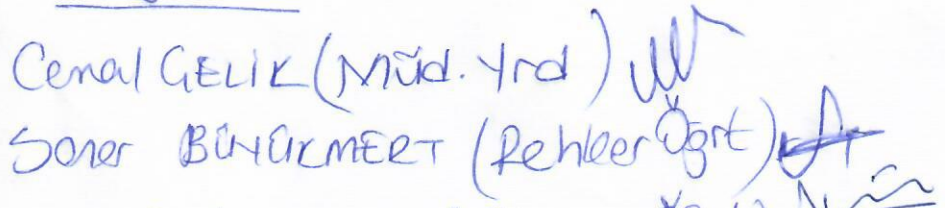 Cemal ÇELİK (Müd. Yrd)
Soner BÜYÜKMERT (Rehber Öğrt)